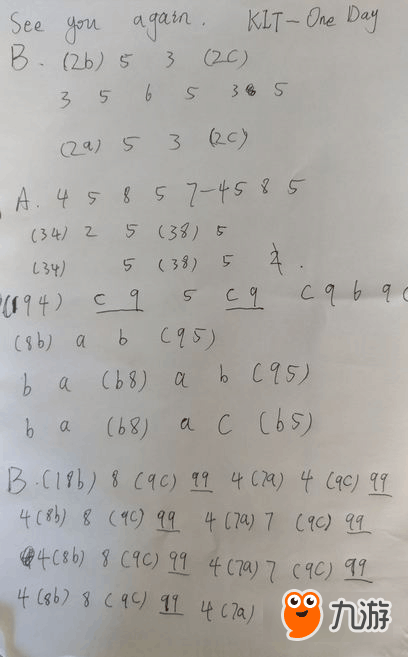 See you again. KIT-One Day
B. (2b) 5 3 (2C)
3 5 6 5 3 5
(2a) 5 3 (2C)
A. 4 5 8 5 7-45 8 5
(34) 2 5 (38) 5
(34) 5 (38) 5
(194) c9 5 c9 c9b9c
(8b) a b (95)
b a (b8) a b (95)
b a (b8) a C (b5)
B. (18b) 8 (9C) 99 4 (7a) 4 (9C) 99
4(8b) 8 (9C) 99 4(7a) 7 (9C) 99
4(8b) 8 (9C) 99 4(7a) 7 (9C) 99
4(8b) 8 (9C) 99 4(7a)
九游